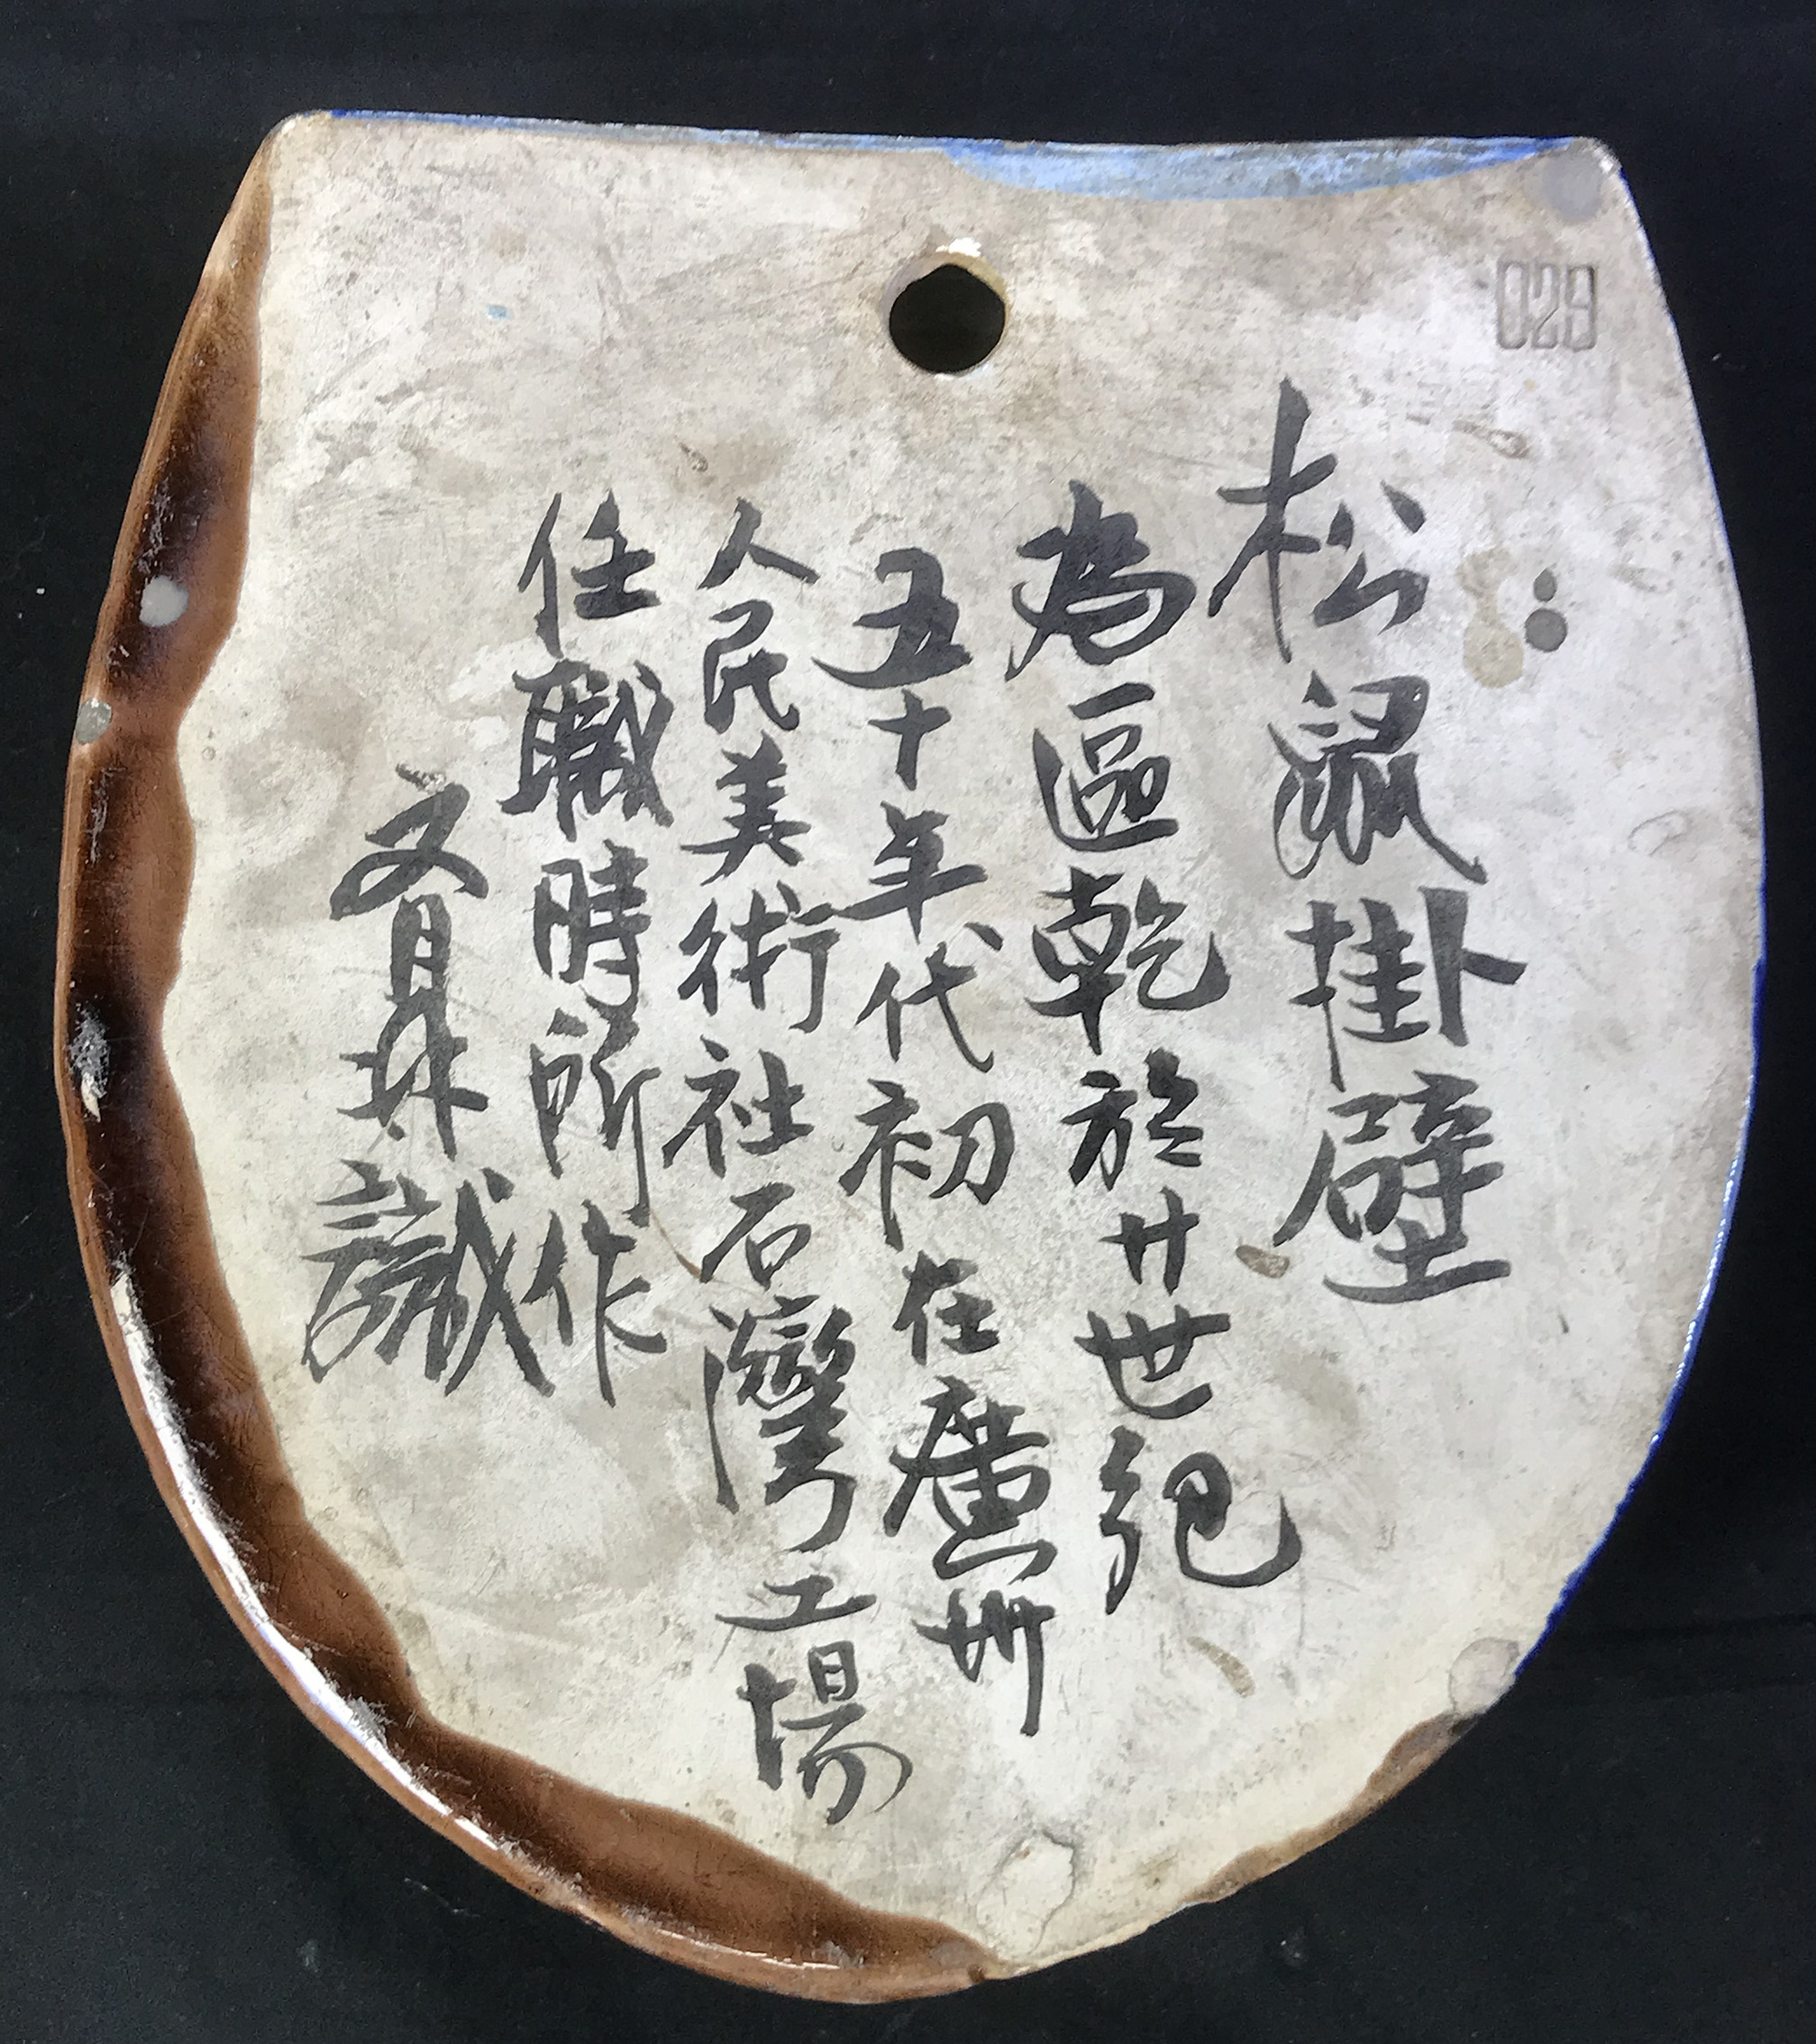 029
松鼠掛壁
為區乾於廿世紀
五十年代初在廣州
人民美術社石灣工場
任職時所作
文昇識